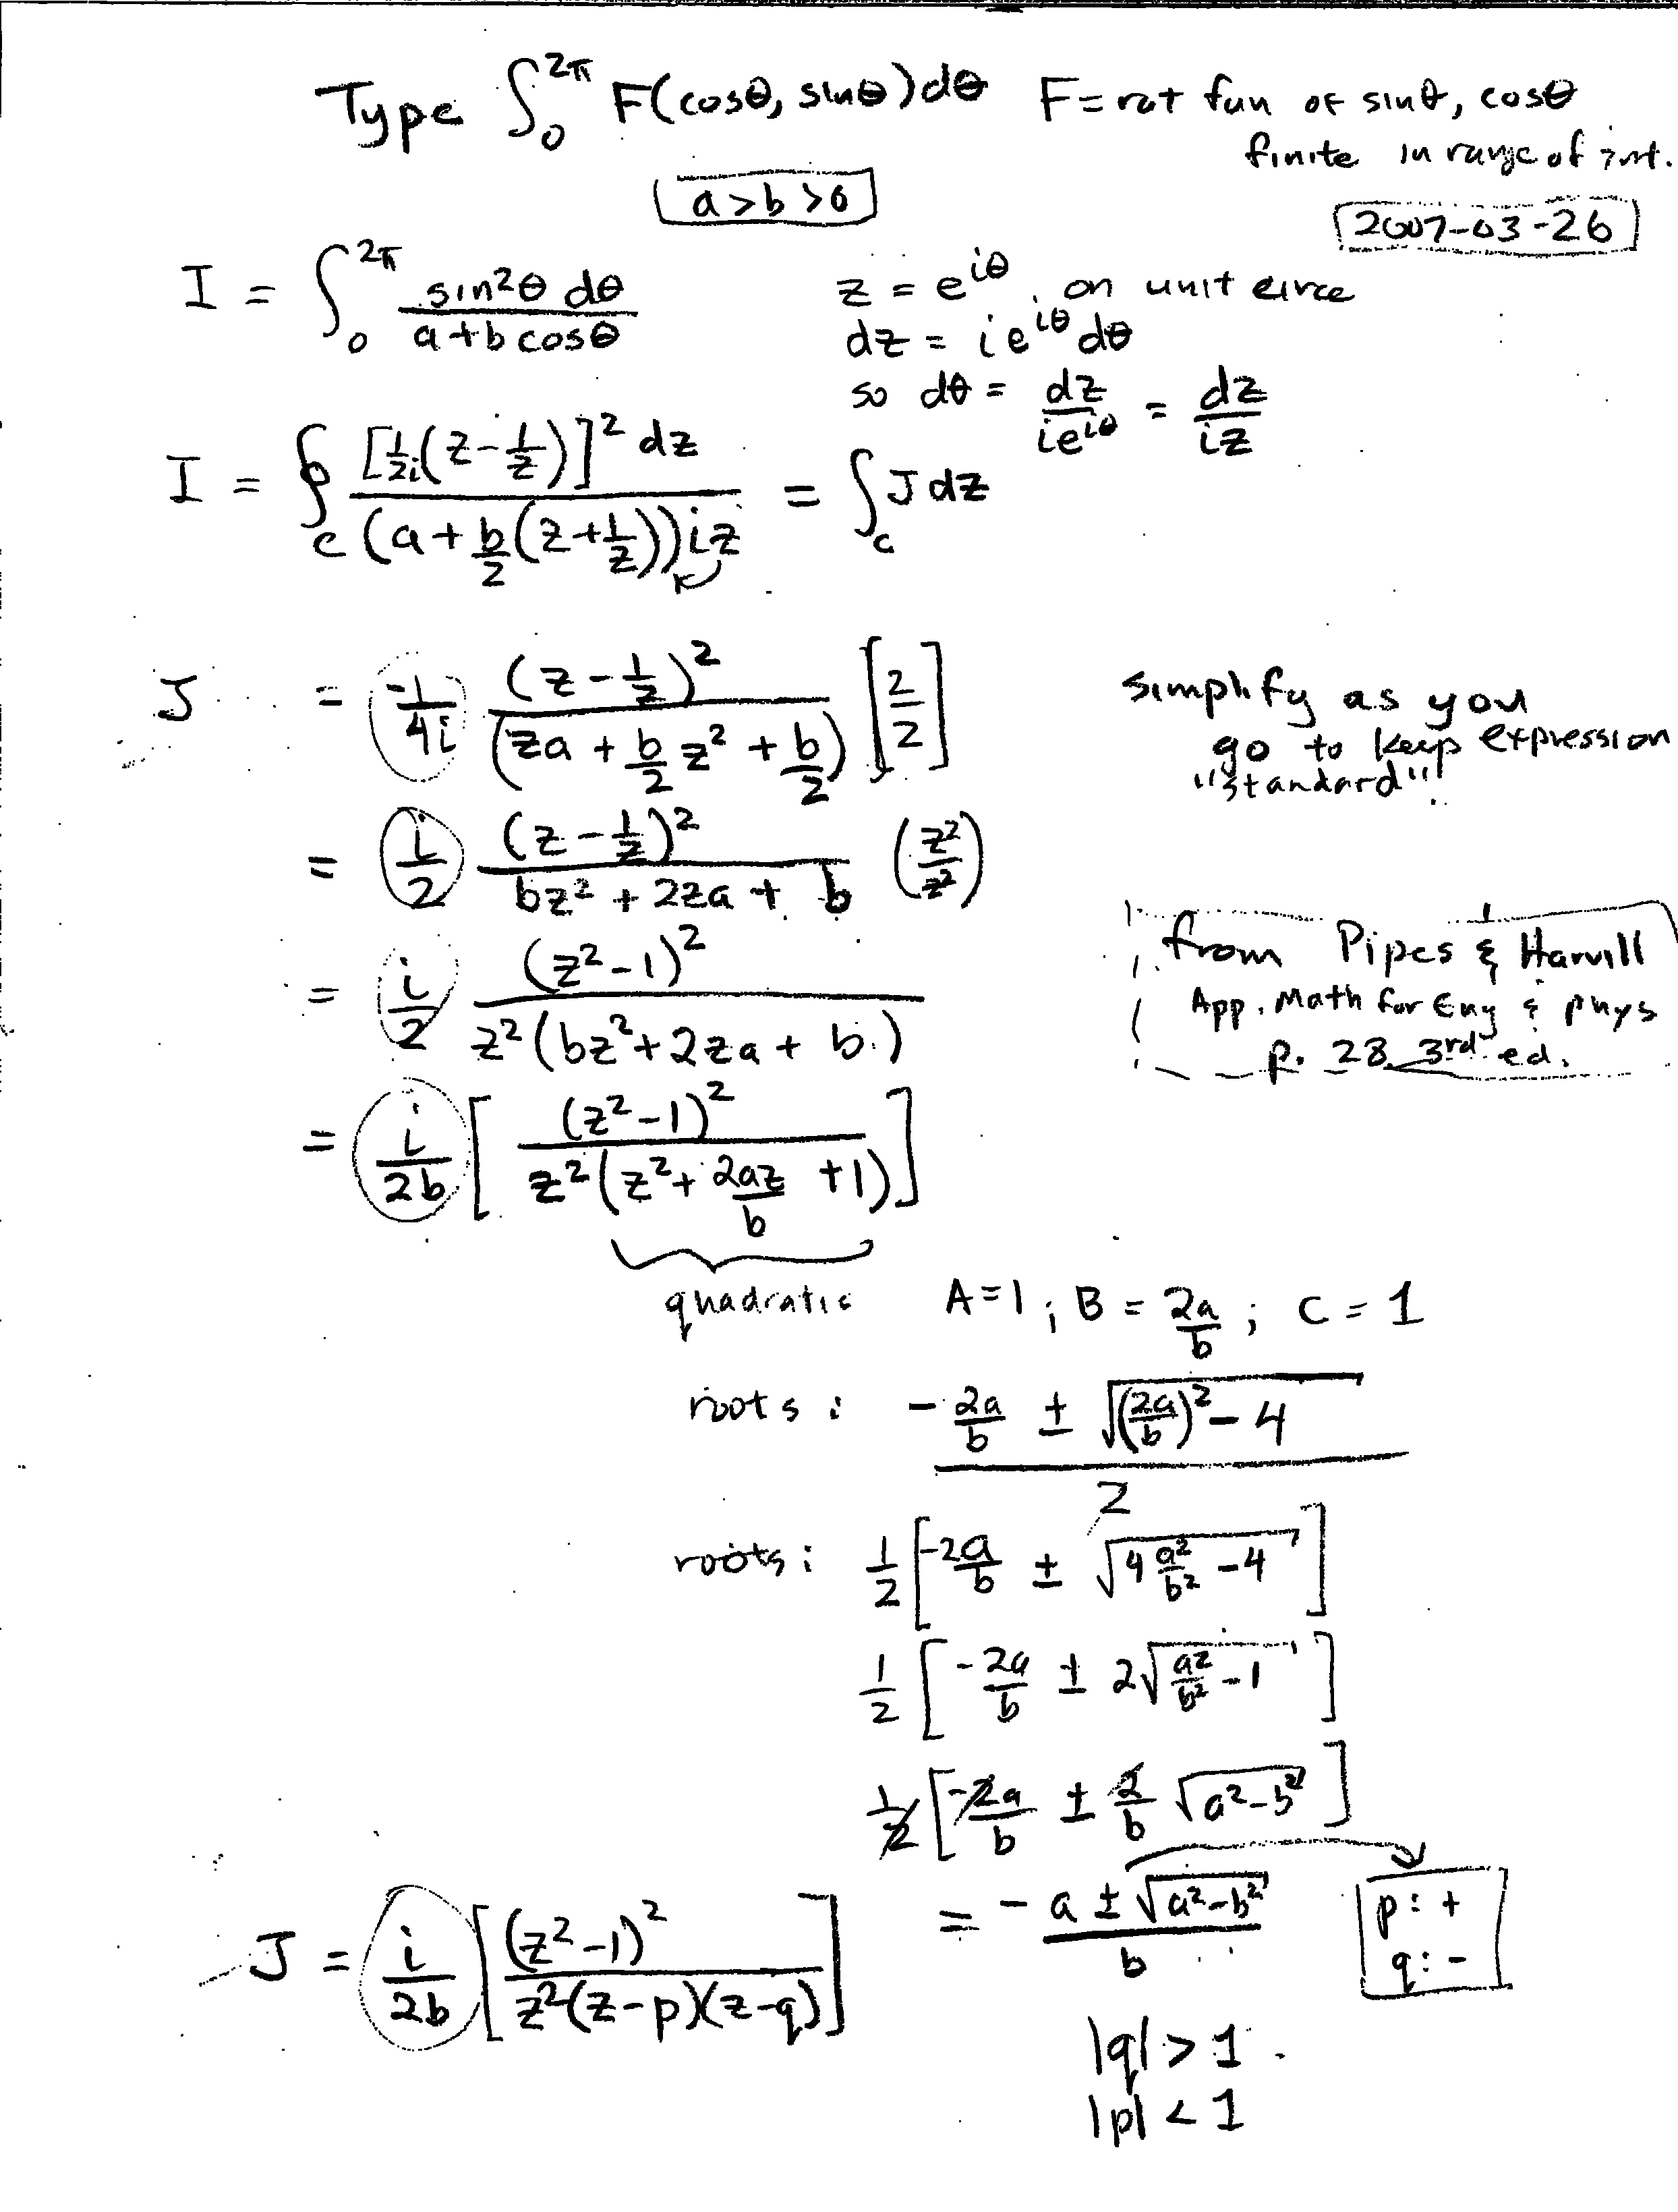 Type ∫₀^{2π} F(cosθ, sinθ)dθ F = rat fun of sinθ, cosθ
finite in range of int.
a > b > 0
2007-03-26
I = ∫₀^{2π} sin²θ dθ / (a + b cosθ)
z = e^{iθ}, on unit circe
dz = i e^{iθ} dθ
so dθ = dz/(i e^{iθ}) = dz/(iz)
I = ∮_c [1/2i (z - 1/z)]² dz / ((a + b/2 (z + 1/z)) iz) = ∫_c J dz
J = -1/4i (z - 1/z)² / (za + b/2 z² + b/2) [2/2]
simplify as you
go to keep expression
"standard"
= i/2 (z - 1/z)² / (bz² + 2za + b) (z²/z²)
= i/2 (z² - 1)² / (z²(bz² + 2za + b))
from Pipes & Harvill
App. Math for Eng & phys
p. 28 3rd ed.
= i/2b [(z² - 1)² / (z²(z² + 2az/b + 1))]
quadratic A = 1 ; B = 2a/b ; C = 1
roots : (-2a/b ± √((2a/b)² - 4)) / 2
roots : 1/2 [-2a/b ± √(4 a²/b² - 4)]
1/2 [-2a/b ± 2√(a²/b² - 1)]
1/2 [-2a/b ± 2/b √(a² - b²)]
= (-a ± √(a² - b²)) / b
p : +
q : -
J = i/2b [(z² - 1)² / (z²(z-p)(z-q))]
|q| > 1
|p| < 1